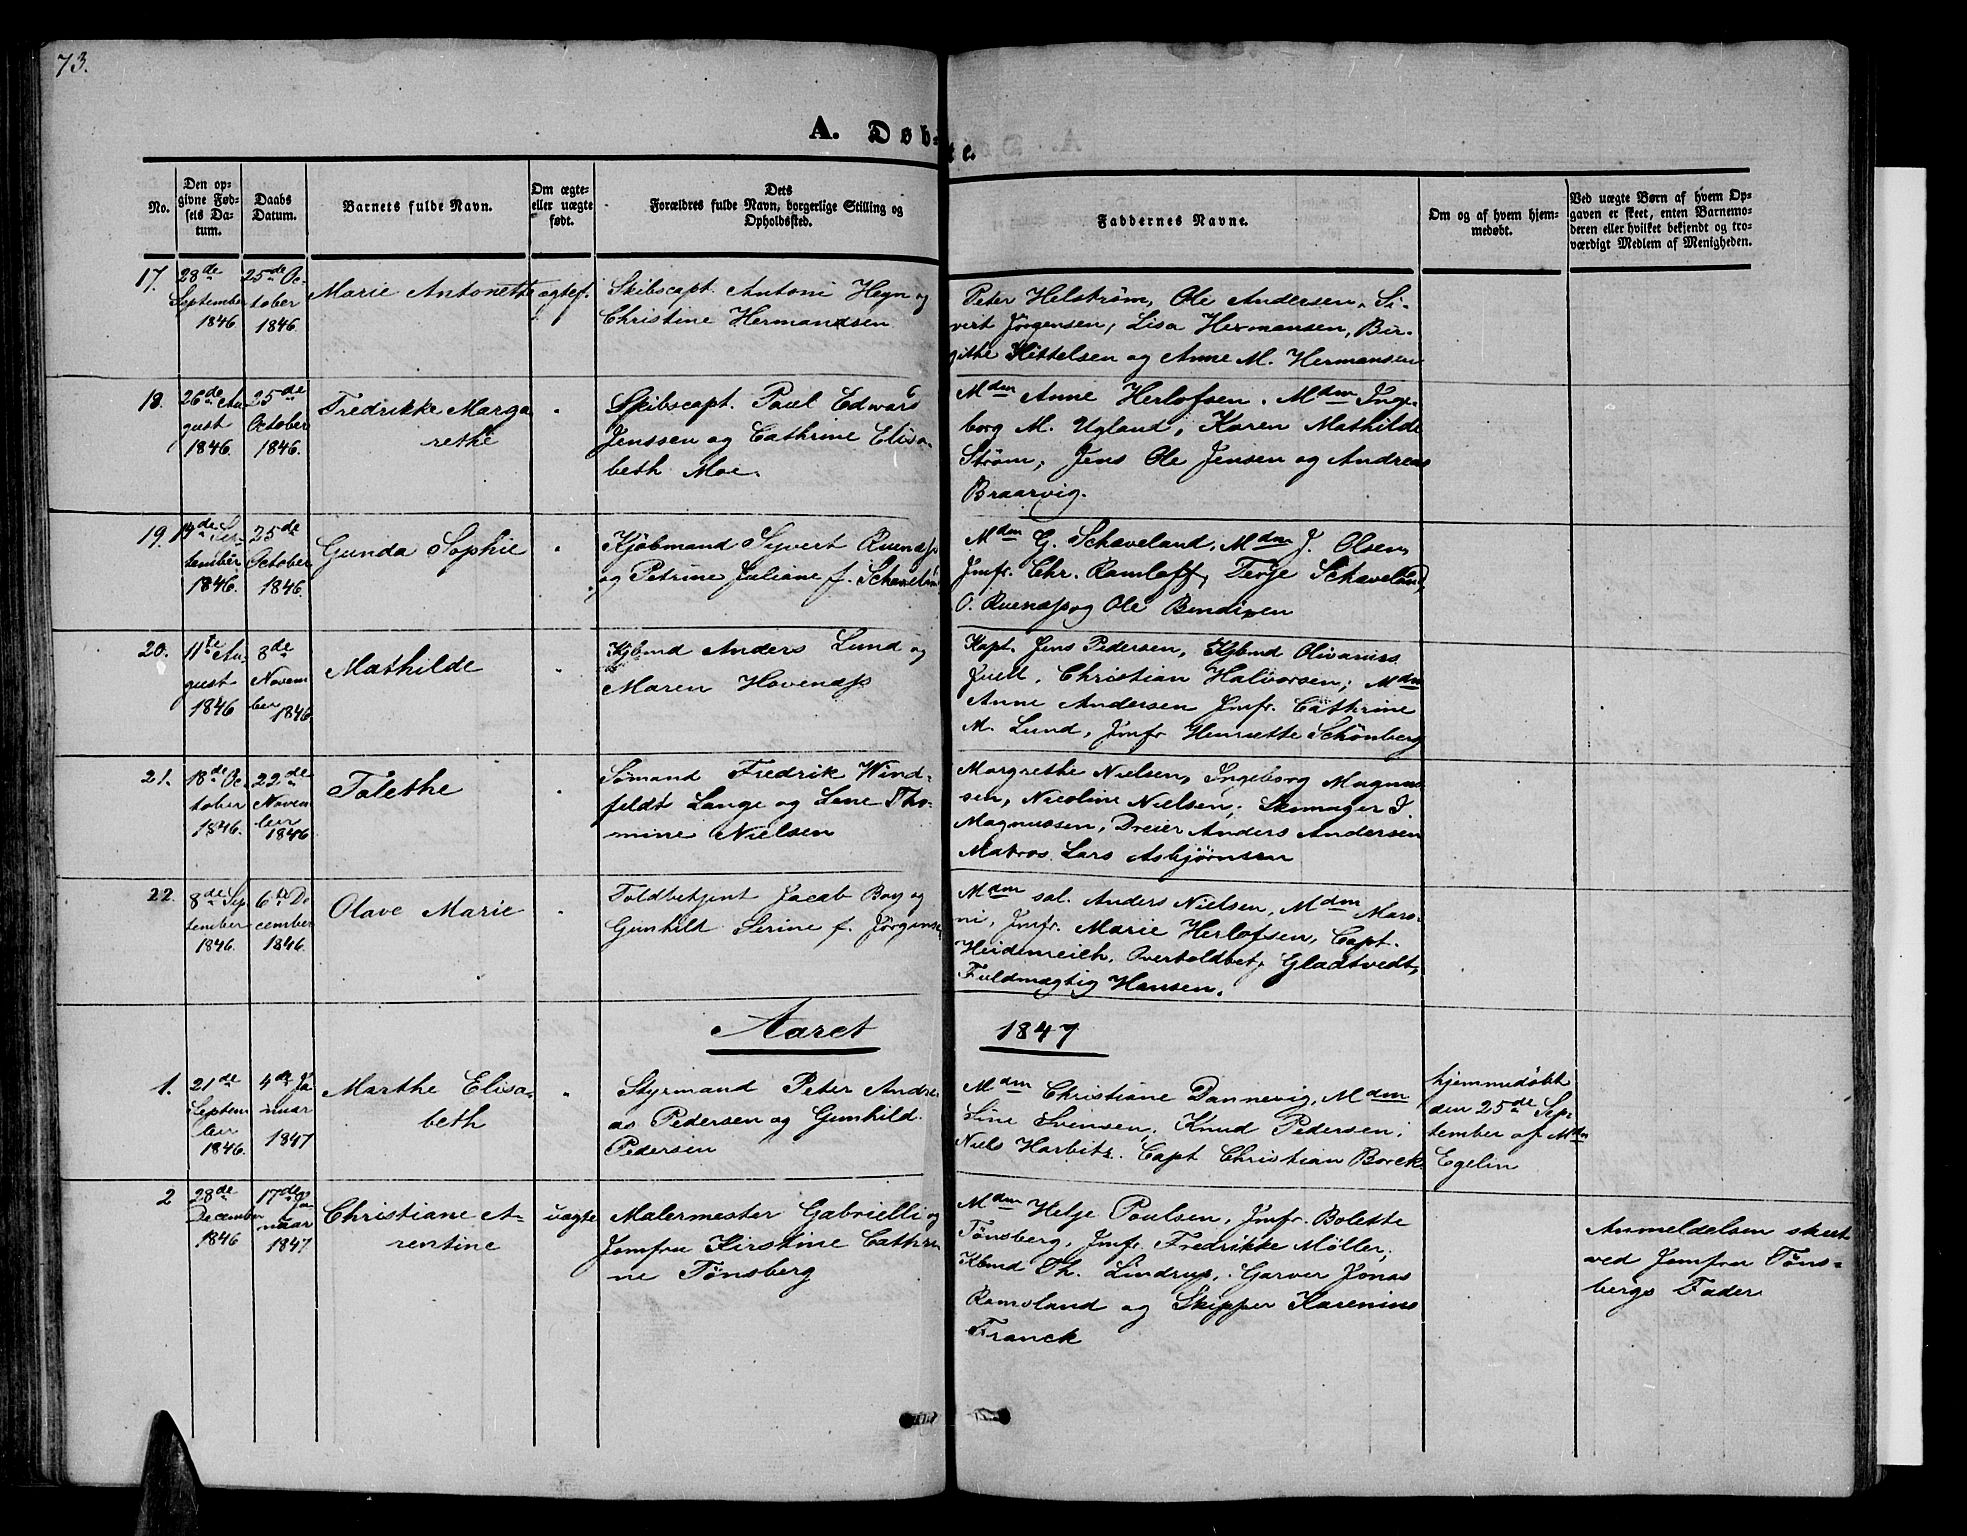 73.
A. Døbte.
No.
Den op-
givne Fød-
sels Da-
tum.
Daabs
Datum.
Barnets fulde Navn.
Om ægte-
eller uægte
født.
Dets
Forældres fulde Navn, borgerlige Stilling og
Opholdssted.
Faddernes Navne.
Om og af hvem hjem-
medøbt.
Ved uægte Børn af hvem Op-
gaven er skeet, enten Barnemo-
deren eller hvilket bekjendt og tro-
værdigt Medlem af Menigheden.
17.
28de
September
1846
25de Oc-
tober
1846.
Marie Antonette
ægtef.
Skibscapt. Antoni Heyn og
Christine Hermandsen
Peter Helström, Ole Andersen, Si-
vert Jørgensen, Lisa Hermansen, Bir-
githe Kittelsen og Anne M. Hermansen
18.
26de Au-
gust
1846.
25de
October
1846.
Fredrikke Marga
rethe
"
Skibscapt. Paul Edward
Jenssen og Cathrine Elisa-
beth Moe.
Mdm Anne Herlofsen. Mdm Inge-
borg M. Ugland, Karen Mathilde
Strøm, Jens Ole Jensen og Andreas
Braarvig.
19.
14de Sep-
tember
1846.
25de
October
1846.
Gunda Sophie
"
Kjøbmand Syvert Ruenæs
og Petrine Juliane f. Schaveland
Mdm G. Schaveland, Mdm J. Olsen,
Jmfr. Chr. Ramloff, Terje Schaveland,
O. Ruenæs og Ole Bendixen
20.
11te Au-
gust
1846
8de
Novem
ber 1846
Mathilde
"
Kjbmd Anders Lund og
Maren Hovenæs
Kapt. Jens Pedersen, Kjbmd Olivarius
Juell, Christian Halvorsen; Mdm
Anne Andersen Jmfr. Cathrine
M. Lund, Jmfr Henriette Schönberg
21.
18de Oc-
tober
1846.
22de
Novem-
ber
1846
Talethe
"
Sømand Fredrik Wind-
feldt Lange og Lene Tho-
mine Nielsen
Margrethe Nielsen, Ingeborg Magnus
sen, Nicoline Nielsen; Skomager J.
Magnussen, Dreier Anders Andersen
Matros Lars Asbjørnsen
22.
8de Sep
tember
1846.
6te De
cember
1846.
Olave Marie
"
Toldbetjent Jacob Boy og
Gunhild Serine f. Jørgensen
Mdm sal. Anders Nielsen, Mdm Maro-
ni, Jmfr. Marie Herlofsen, Capt.
Heidenreich, Overtoldbetj Gladtvedt,
Fuldmægtig Hansen.
Aaret 1847
1.
21de
Septem
ber
1846.
4de Ja
nuar
1847
Marthe Elisa-
beth
"
Styrmand Peter Andre
as Pedersen og Gunhild
Pedersen
Mdm Christiane Dannevig, Mdm
Sine Svensen, Knud Pedersen,
Niels Harbitz, Capt Christian Borck
hjemmedøbt
den 25de Sep-
tember af Mdm
Egelin
2
28de
December
1846
17de Ja-
nuar
1847
Christiane A-
rentine
uægte
Malermester Gabrielli og
Jomfru Kirstine Cathri
ne Tønsberg
Mdm Helje Poulsen, Jmfr. Bolette
Tönsberg, Jmfr. Fredrikke Möller,
Kbmd Th. Lindrup, Garver Jonas
Ramsland og Skipper Karenius
Franck
Anmeldelsen skeet
ved Jomfru Töns-
bergs Fader